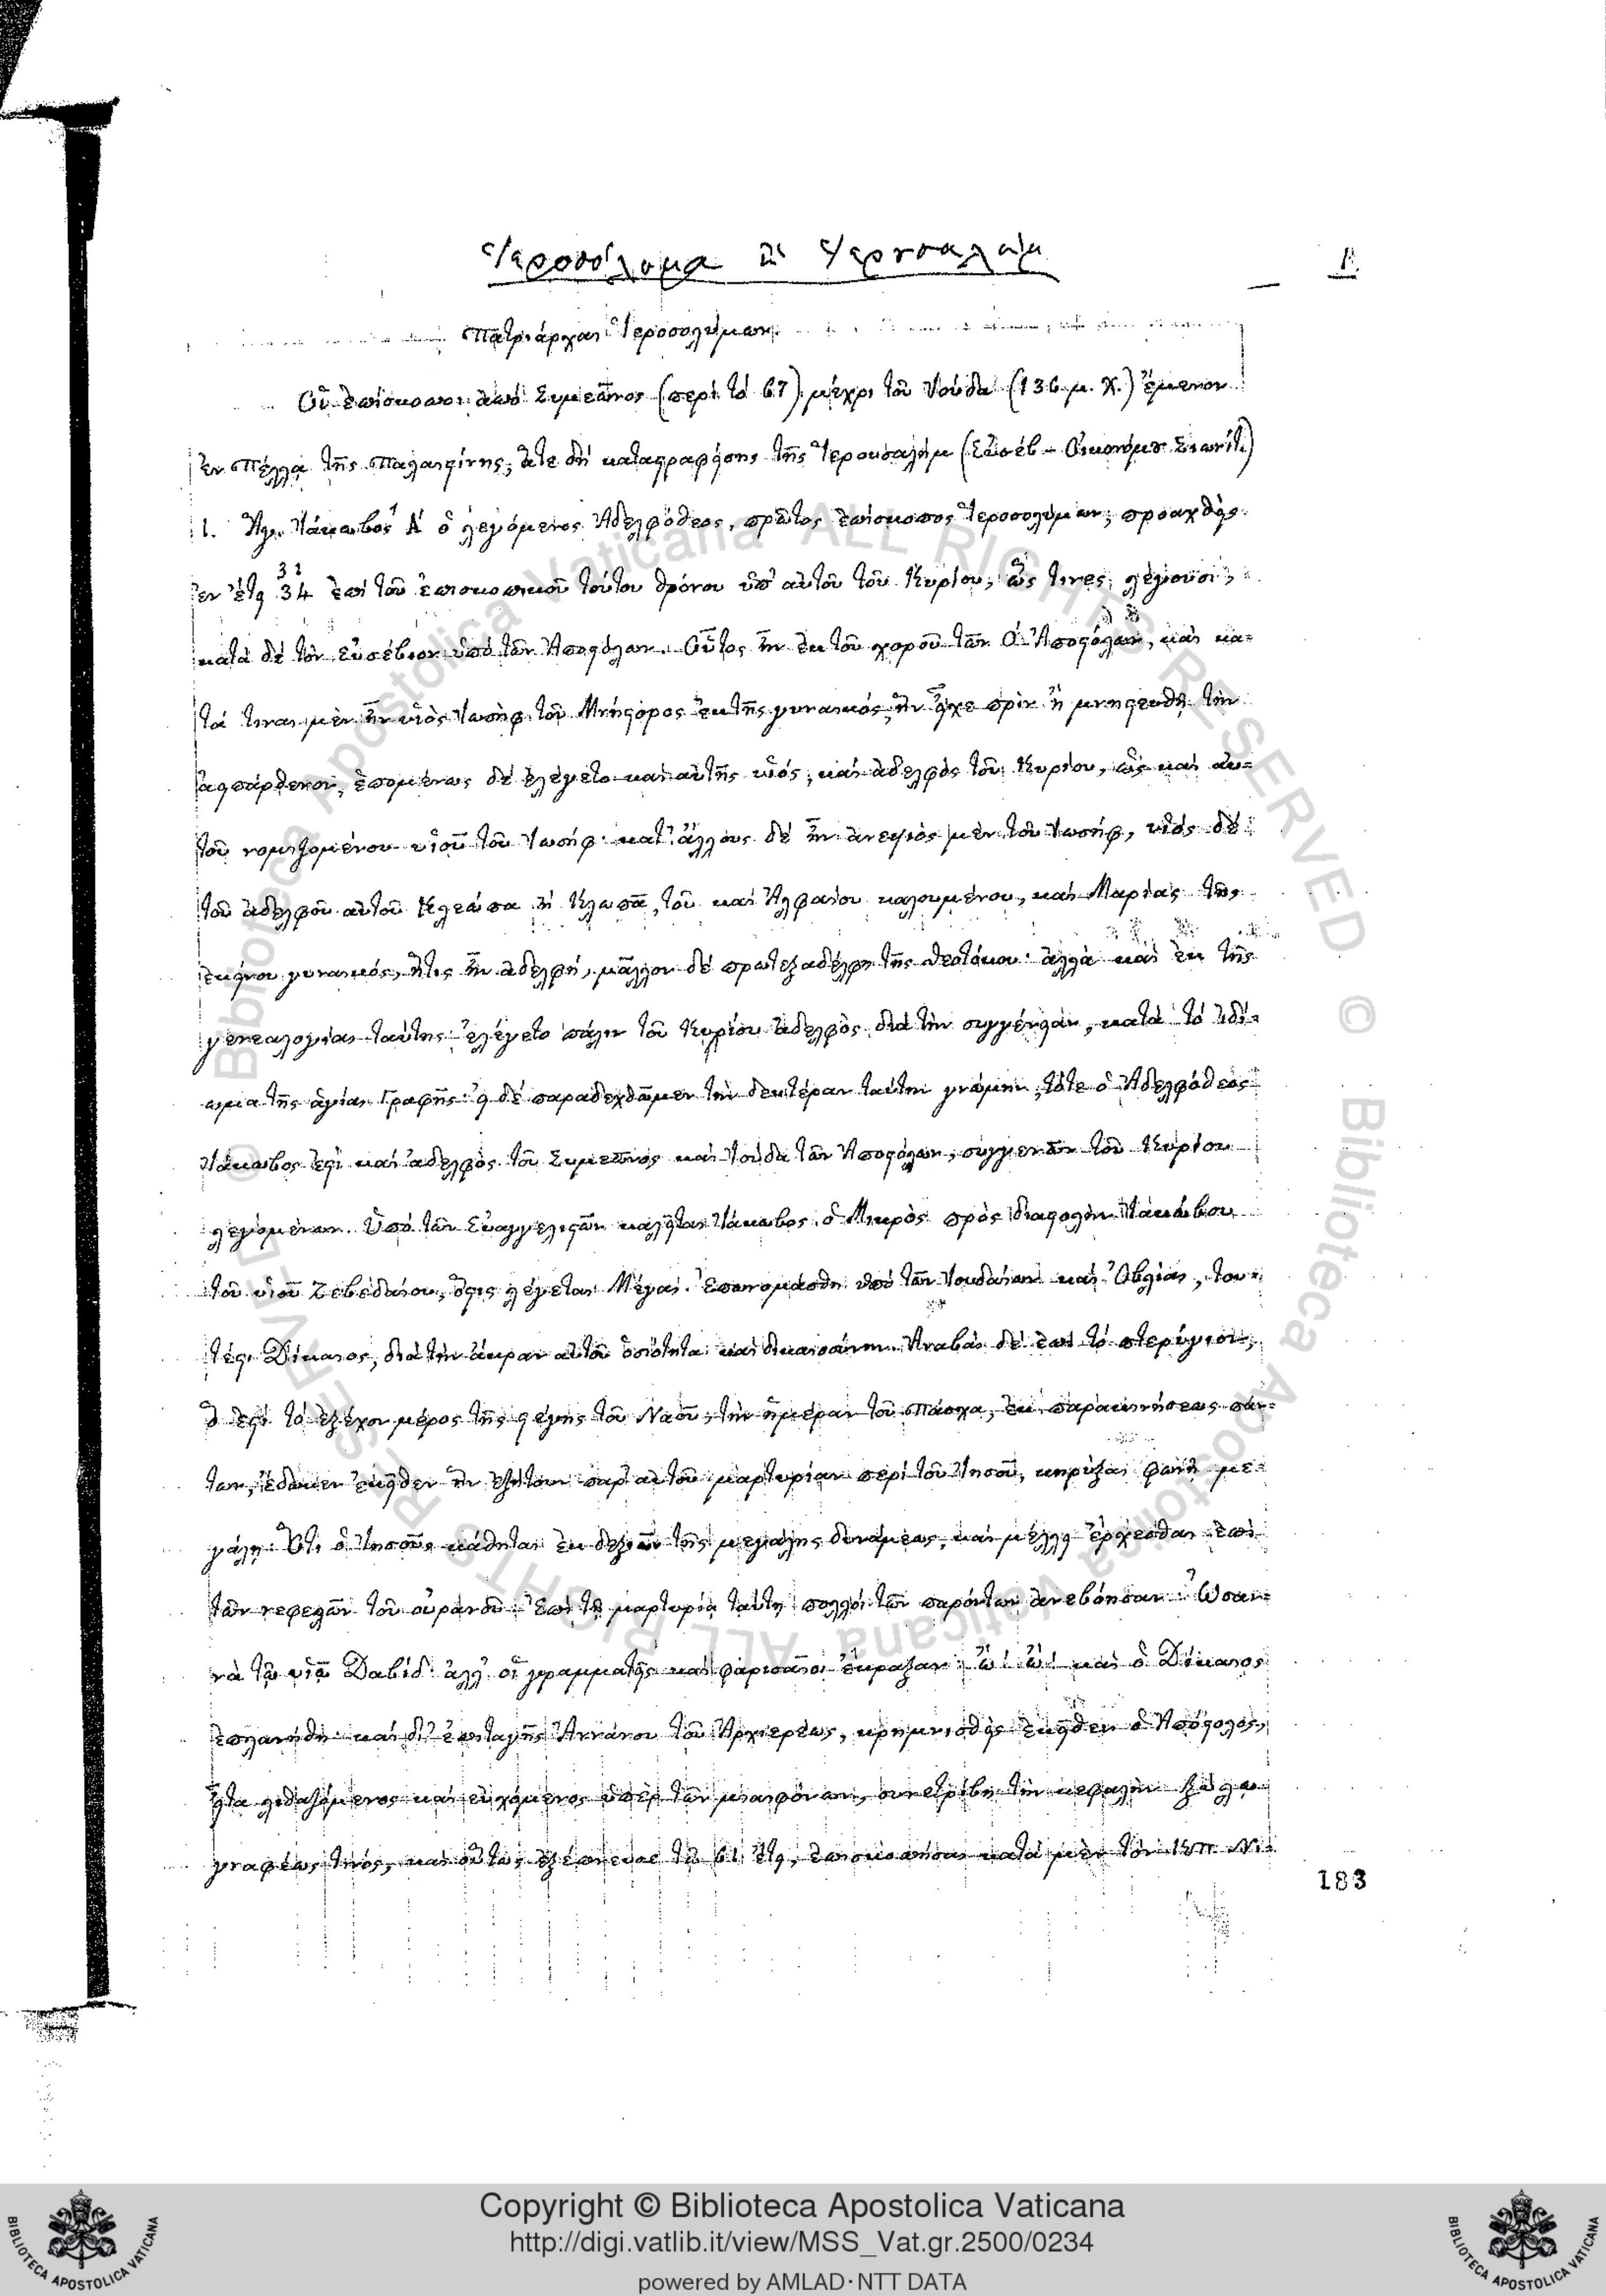 Ἱεροσόλυμα ἢ Ἱερουσαλὴμ
1.
Πατριάρχαι Ἱεροσολύμων.
Οἱ ἐπίσκοποι ἀπὸ Συμεῶνος (περὶ τὸ 67) μέχρι τοῦ Ἰούδα (136 μ. Χ.) ἔμενον
ἐν Πέλλᾳ τῆς Παλαιστίνης, ἅτε δὴ καταστραφείσης τῆς Ἱερουσαλήμ (Εὐσέβ - Οἰκονόμ Σιωνίτ.)
1. Ἅγ. Ἰάκωβος Α΄ ὁ λεγόμενος Ἀδελφόθεος, πρῶτος ἐπίσκοπος Ἱεροσολύμων, προαχθεὶς
31
ἐν ἔτει 34 ἐπὶ τοῦ ἐπισκοπικοῦ τούτου θρόνου ὑπ' αὐτοῦ τοῦ Κυρίου, ὥς τινες λέγουσι,
κατὰ δὲ τὸν Εὐσέβιον ὑπὸ τῶν Ἀποστόλων. Οὗτος ἦν ἐκ τοῦ χοροῦ τῶν Ο΄ Ἀποστόλων, καὶ κα-
τά τινας μὲν ἦν υἱὸς Ἰωσὴφ τοῦ Μνήστορος ἐκ τῆς γυναικός, ἣν εἶχε πρὶν ἢ μνηστευθῇ τὴν
ἀειπάρθενον, ἑπομένως δὲ ἐλέγετο καὶ αὐτῆς υἱός, καὶ ἀδελφὸς τοῦ Κυρίου, ὡς καὶ αὐ-
τοῦ νομιζομένου υἱοῦ τοῦ Ἰωσήφ· κατ' ἄλλους δὲ ἦν ἀνεψιὸς μὲν τοῦ Ἰωσήφ, υἱὸς δὲ
τοῦ ἀδελφοῦ αὐτοῦ Κλεώπα ἢ Κλωπᾶ, τοῦ καὶ Ἀλφαίου καλουμένου, καὶ Μαρίας τῆς
ἐκείνου γυναικός, ἥτις ἦν ἀδελφή, μᾶλλον δὲ πρωτεξαδέλφη τῆς Θεοτόκου· ἀλλὰ καὶ ἐκ τῆς
γενεαλογίας ταύτης ἐλέγετο πάλιν τοῦ Κυρίου ἀδελφὸς διὰ τὴν συγγένειαν, κατὰ τὸ ἰδί-
ωμα τῆς ἁγίας Γραφῆς· εἰ δὲ παραδεχθῶμεν τὴν δευτέραν ταύτην γνώμην, τότε ὁ Ἀδελφόθεος
Ἰάκωβος ἐστὶ καὶ ἀδελφὸς τοῦ Συμεῶνος καὶ Ἰούδα τῶν Ἀποστόλων, συγγενῶν τοῦ Κυρίου
λεγομένων. Ὑπὸ τῶν Εὐαγγελιστῶν καλεῖται Ἰάκωβος ὁ Μικρὸς πρὸς διαστολὴν Ἰακώβου
τοῦ υἱοῦ Ζεβεδαίου, ὅστις λέγεται Μέγας. Ἐπωνομάσθη ὑπὸ τῶν Ἰουδαίων καὶ Ὀβλίας, του-
τέστι Δίκαιος, διὰ τὴν ἄκραν αὐτοῦ ὁσιότητα καὶ δικαιοσύνην. Ἀναβὰς δὲ ἐπὶ τὸ πτερύγιον,
ὅ ἐστι τὸ ἐξέχον μέρος τῆς στέγης τοῦ Ναοῦ, τὴν ἡμέραν τοῦ Πάσχα, ἐκ παρακινήσεως πάν-
των, ἔδωκεν ἐκεῖθεν ἣν ἐζήτουν παρ' αὐτοῦ μαρτυρίαν περὶ τοῦ Ἰησοῦ, κηρύξας φωνῇ με-
γάλῃ· Ὅτι ὁ Ἰησοῦς κάθηται ἐκ δεξιῶν τῆς μεγάλης δυνάμεως, καὶ μέλλει ἔρχεσθαι ἐπὶ
τῶν νεφελῶν τοῦ οὐρανοῦ· Ἐπὶ τῇ μαρτυρίᾳ ταύτῃ πολλοὶ τῶν παρόντων ἀνεβόησαν· Ὡσαν-
νὰ τῷ υἱῷ Δαβίδ· ἀλλ' οἱ γραμματεῖς καὶ φαρισαῖοι ἔκραξαν· ὢ! ὢ! καὶ ὁ Δίκαιος
ἐπλανήθη· καὶ δι' ἐπιταγῆς Ἀννάνου τοῦ Ἀρχιερέως, κρημνισθεὶς ἐκεῖθεν ὁ Ἀπόστολος,
εἶτα λιθαζόμενος καὶ εὐχόμενος ὑπὲρ τῶν μιαιφόνων, συνετρίβη τὴν κεφαλὴν ξύλῳ
γναφέως τινός, καὶ οὕτως ἐξέπνευσε τῷ 61 ἔτει, ἐπισκοπήσας κατὰ μὲν τὸν
183
Copyright © Biblioteca Apostolica Vaticana
http://digi.vatlib.it/view/MSS_Vat.gr.2500/0234
powered by AMLAD·NTT DATA